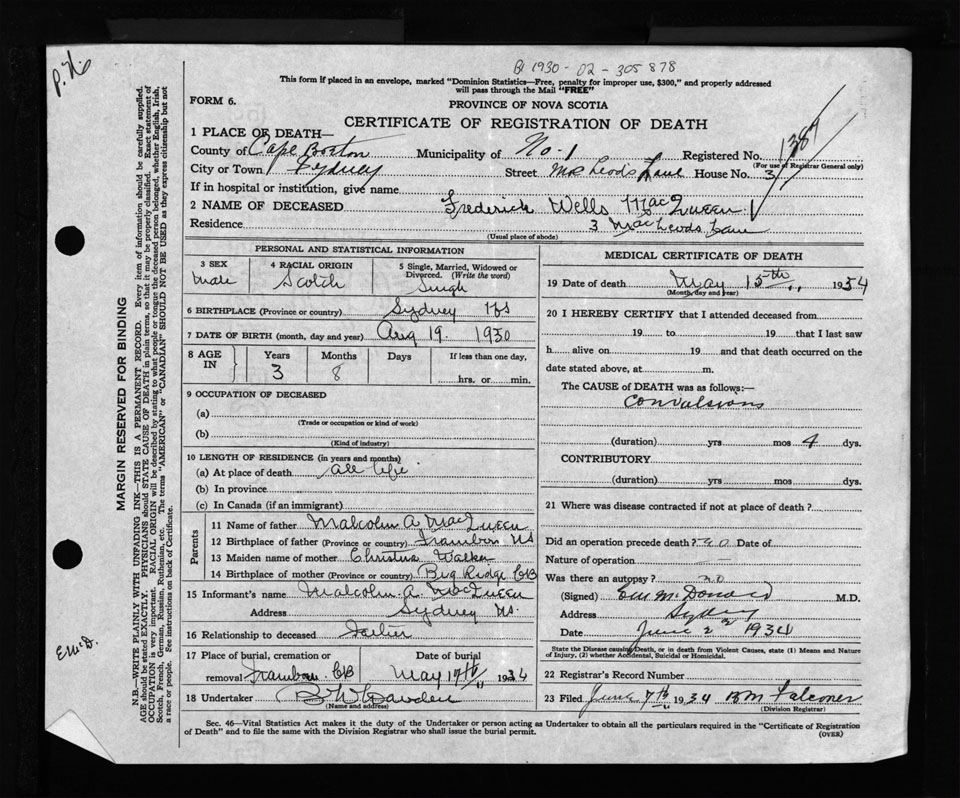 P.H.
B 1930 - 02 - 305878
This form if placed in an envelope, marked "Dominion Statistics—Free, penalty for improper use, $300," and properly addressed
will pass through the Mail "FREE"
FORM 6.
PROVINCE OF NOVA SCOTIA
CERTIFICATE OF REGISTRATION OF DEATH
1387
1 PLACE OF DEATH—
County of Cape Breton Municipality of No. 1 Registered No.
(For use of Registrar General only)
City or Town Sydney Street McLeods Lane House No. 3
If in hospital or institution, give name
2 NAME OF DECEASED Frederick Wells MacQueen
Residence 3 MacLeods Lane
(Usual place of abode)
PERSONAL AND STATISTICAL INFORMATION
3 SEX Male
4 RACIAL ORIGIN Scotch
5 Single, Married, Widowed or Divorced. (Write the word) Single
6 BIRTHPLACE (Province or country) Sydney NS
7 DATE OF BIRTH (month, day and year) Aug 19. 1930
8 AGE IN Years 3 Months 8 Days If less than one day, hrs. or min.
9 OCCUPATION OF DECEASED
(a)
(Trade or occupation or kind of work)
(b)
(Kind of industry)
10 LENGTH OF RESIDENCE (in years and months)
(a) At place of death all life
(b) In province
(c) In Canada (if an immigrant)
Parents
11 Name of father Malcolm A. MacQueen
12 Birthplace of father (Province or country) Framboise NS
13 Maiden name of mother Christie Walker
14 Birthplace of mother (Province or country) Big Ridge CB
15 Informant's name Malcolm A. MacQueen
Address Sydney NS.
16 Relationship to deceased Father
17 Place of burial, cremation or removal Framboise CB
Date of burial May 17th 1934
18 Undertaker
(Name and address)
MEDICAL CERTIFICATE OF DEATH
19 Date of death May 15th 1934
(Month, day and year)
20 I HEREBY CERTIFY that I attended deceased from
19 to 19 that I last saw
h alive on 19 and that death occurred on the
date stated above, at m.
The CAUSE of DEATH was as follows:—
Convulsions
(duration) yrs mos 4 dys.
CONTRIBUTORY
(duration) yrs mos dys.
21 Where was disease contracted if not at place of death?
Did an operation precede death? no Date of
Nature of operation —
Was there an autopsy? no
(Signed) E M McDonald M.D.
Address Sydney
Date June 2nd 1934
State the Disease causing Death, or in death from Violent Causes, state (1) Means and
Nature of Injury, (2) whether Accidental, Suicidal or Homicidal.
22 Registrar's Record Number
23 Filed June 7th 1934 B M Falconer
(Division Registrar)
Sec. 46—Vital Statistics Act makes it the duty of the Undertaker or person acting as Undertaker to obtain all the particulars required in the "Certificate of Registration
of Death" and to file the same with the Division Registrar who shall issue the burial permit.
(OVER)
MARGIN RESERVED FOR BINDING
N.B.—WRITE PLAINLY WITH UNFADING INK—THIS IS A PERMANENT RECORD. Every item of information should be carefully supplied.
AGE should be stated EXACTLY. PHYSICIANS should STATE CAUSE OF DEATH in plain terms, so that it may be properly classified. Exact statement of
OCCUPATION is very important. RACIAL ORIGIN will be described by stating to what people or tongue the deceased person belonged, whether English, Irish,
Scotch, French, German, Russian, Ruthenian, etc. The terms "AMERICAN" or "CANADIAN" SHOULD NOT BE USED as they express citizenship but not
a race or people. See instructions on back of Certificate.
E.McD.